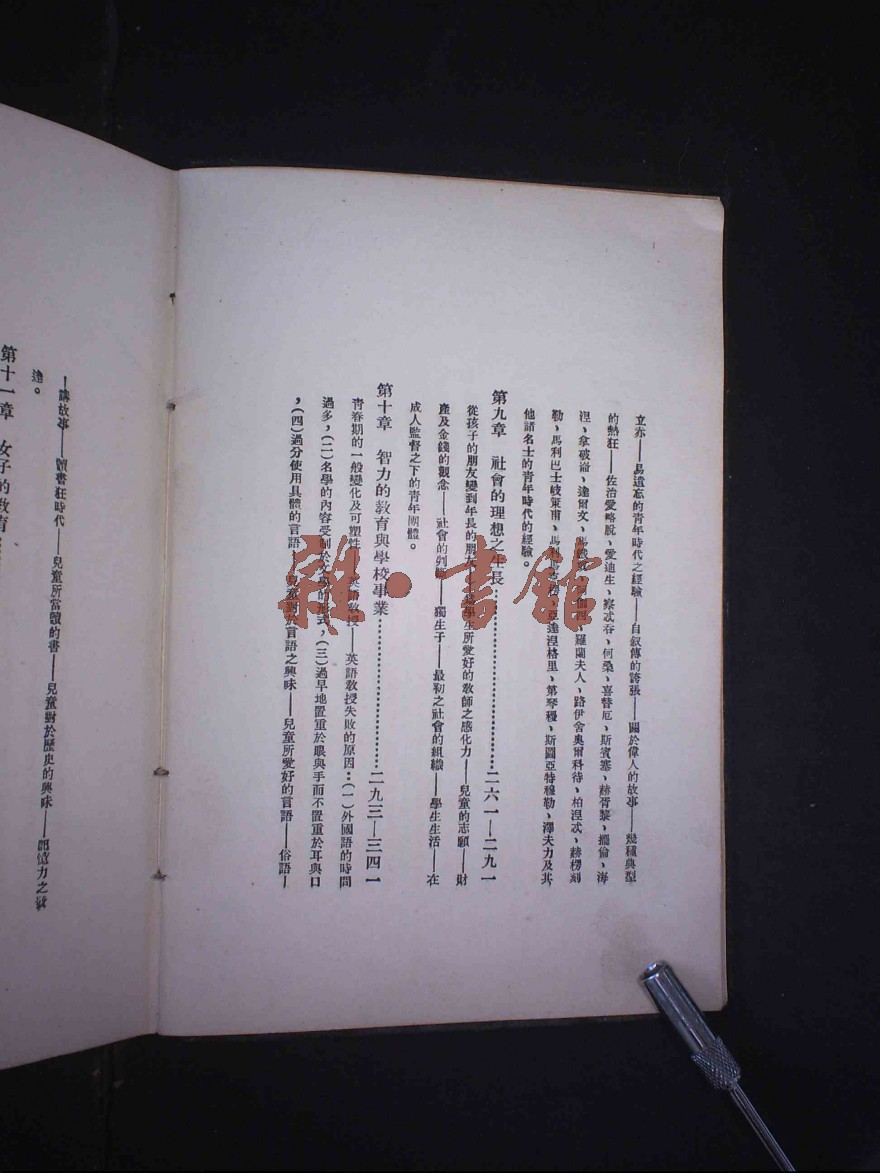 立亦——易遺忘的靑年時代之經驗——自叙傳的誇張——關於偉人的故事——幾種典型
的熱狂——佐治愛略脫、愛迪生、察忒吞、何桑、喜替厄、斯賓塞、赫胥黎、擺倫、海
涅、拿破崙、達爾文、羅蘭夫人、路伊舍奧爾科特、柏涅忒、赫楞刻
勒、馬利巴士岐策甫、馬利 亞達涅格里、第琴穆、斯圖亞特穆勒、澤夫力及其
他諸名士的靑年時代的經驗。
第九章 社會的理想之生長 二六一—二九一
從孩子的朋友變到年長的朋友 學生所愛好的敎師之感化力——兒童的志願——財
產及金錢的觀念——社會的判 ——獨生子——最初之社會的組織——學生生活——在
成人監督之下的靑年團體。
第十章 智力的敎育與學校事業 二九三—三四一
靑春期的一般變化及可塑性——英語敎授——英語敎授失敗的原因：(一)外國語的時間
過多，(二)名學的內容受制於文學的形式，(三)過早地置重於眼與手而不置重於耳與口
，(四)過分使用具體的言語——兒童對於言語之興味——兒童所愛好的言語——俗語—
—講故事——讀書狂時代——兒童所當讀的書——兒童對於歷史的興味——記憶力之發
達。
第十一章 女子的敎育
雜·書館